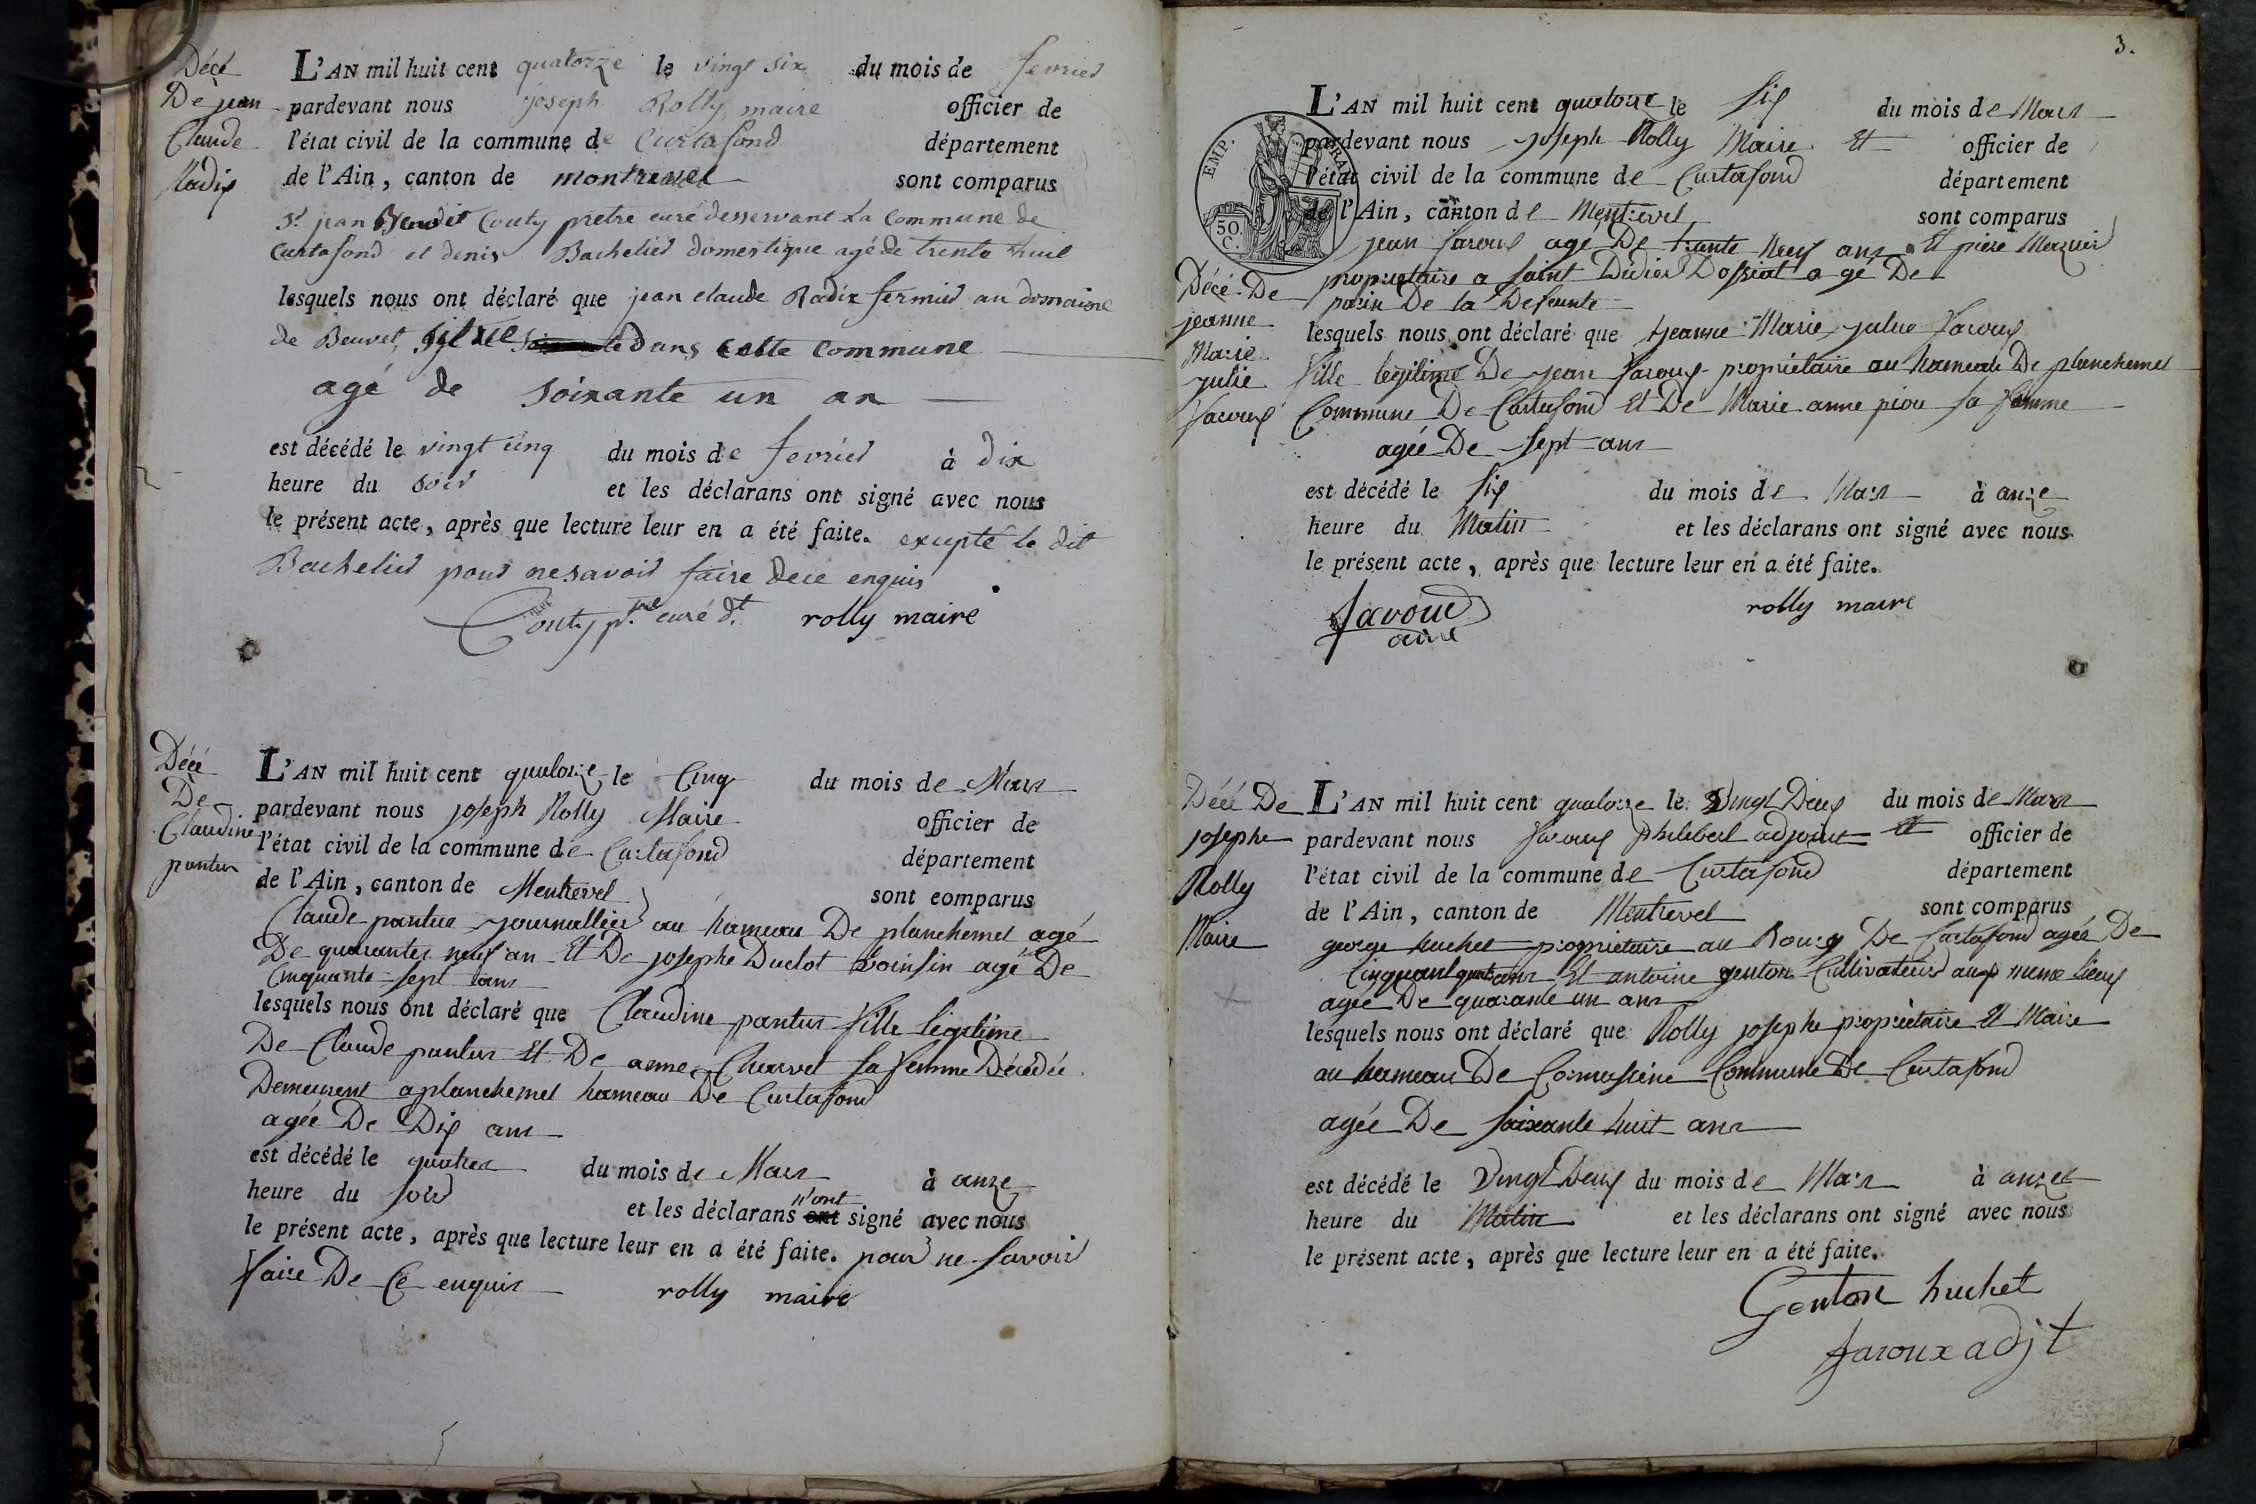 Décè
De jean
Claude
Radix
L'AN mil huit cent quatorze le vingt six du mois de fevrier
pardevant nous joseph Rolly maire officier de
l'état civil de la commune de Curtafond département
de l'Ain, canton de montrevel sont comparus
Sr jean Benoit Couty pretre curé desservant La Commune de
Curtafond et denis Bachelier domestique agé de trente huit
lesquels nous ont déclaré que jean claude Radix fermier au domaine
de Beuvet, dans cette commune
agé de soixante un an
est décédé le vingt cinq du mois de fevrier à dix
heure du soir et les déclarans ont signé avec nous
le présent acte, après que lecture leur en a été faite. excepté le dit
Bachelier pour ne savoir faire dece enquis
Couty ptre curé dt rolly maire
Décé
De
Claudine
pantin
L'AN mil huit cent quatorze le Cinq du mois de Mars
pardevant nous joseph Rolly Maire officier de
l'état civil de la commune de Curtafond département
de l'Ain, canton de Montrevel sont comparus
Claude journallier au hameau De planchemel agé
De quarante neuf an Et De josephe Duclot voinsin agé De
Cinquante sept ans
lesquels nous ont déclaré que Claudine pantin fille légitime
De Claude pantin Et De anne Charvet sa femme Décédée
Demeurent a planchemel hameau De Curtafond
agée De Dix ans
est décédé le quatres du mois de Mars à onze
heure du soir et les déclarans n'ont ont signé avec nous
le présent acte, après que lecture leur en a été faite. pour ne savoir
faire De Ce enquis rolly maire
3.
EMP. FRA
50. C.
L'AN mil huit cent quatorze le six du mois de Mars
pardevant nous joseph Rolly Maire Et officier de
l'état civil de la commune de Curtafond département
de l'Ain, canton de Montrevel sont comparus
jean faroux agé De trante Neuf ans Et piere Mercier
propriétaire a saint Didier Dossiat a gé De
parin De la Defeunte
Décé De
jeanne
Marie
julie
faroux
lesquels nous ont déclaré que jeanne Marie julie faroux
fille legitime De jean faroux propriétaire au hameau De planchemel
Commune De Curtafond Et De Marie anne piou sa femme
agée De sept ans
est décédé le six du mois de Mars à onze
heure du Matin et les déclarans ont signé avec nous
le présent acte, après que lecture leur en a été faite.
rolly maire
Décé De
josephe
Rolly
Maire
L'AN mil huit cent quatorze le Vingt Deux du mois de Mars
pardevant nous faroux philibert adjoint Et officier de
l'état civil de la commune de Curtafond département
de l'Ain, canton de Montrevel sont comparus
george huchet propriétaire au Bourg De Curtafond agée De
ans Et antoine genton Cultivateur aux meme lieux
agée De quarante un ans
lesquels nous ont déclaré que Rolly josephe propriètaire Et Maire
au hameau De Commune De Curtafond
agée De soixante huit ans
est décédé le Vingt Deux du mois de Mars à onze
heure du Matin et les déclarans ont signé avec nous
le présent acte, après que lecture leur en a été faite.
Genton huchet
faroux adjt